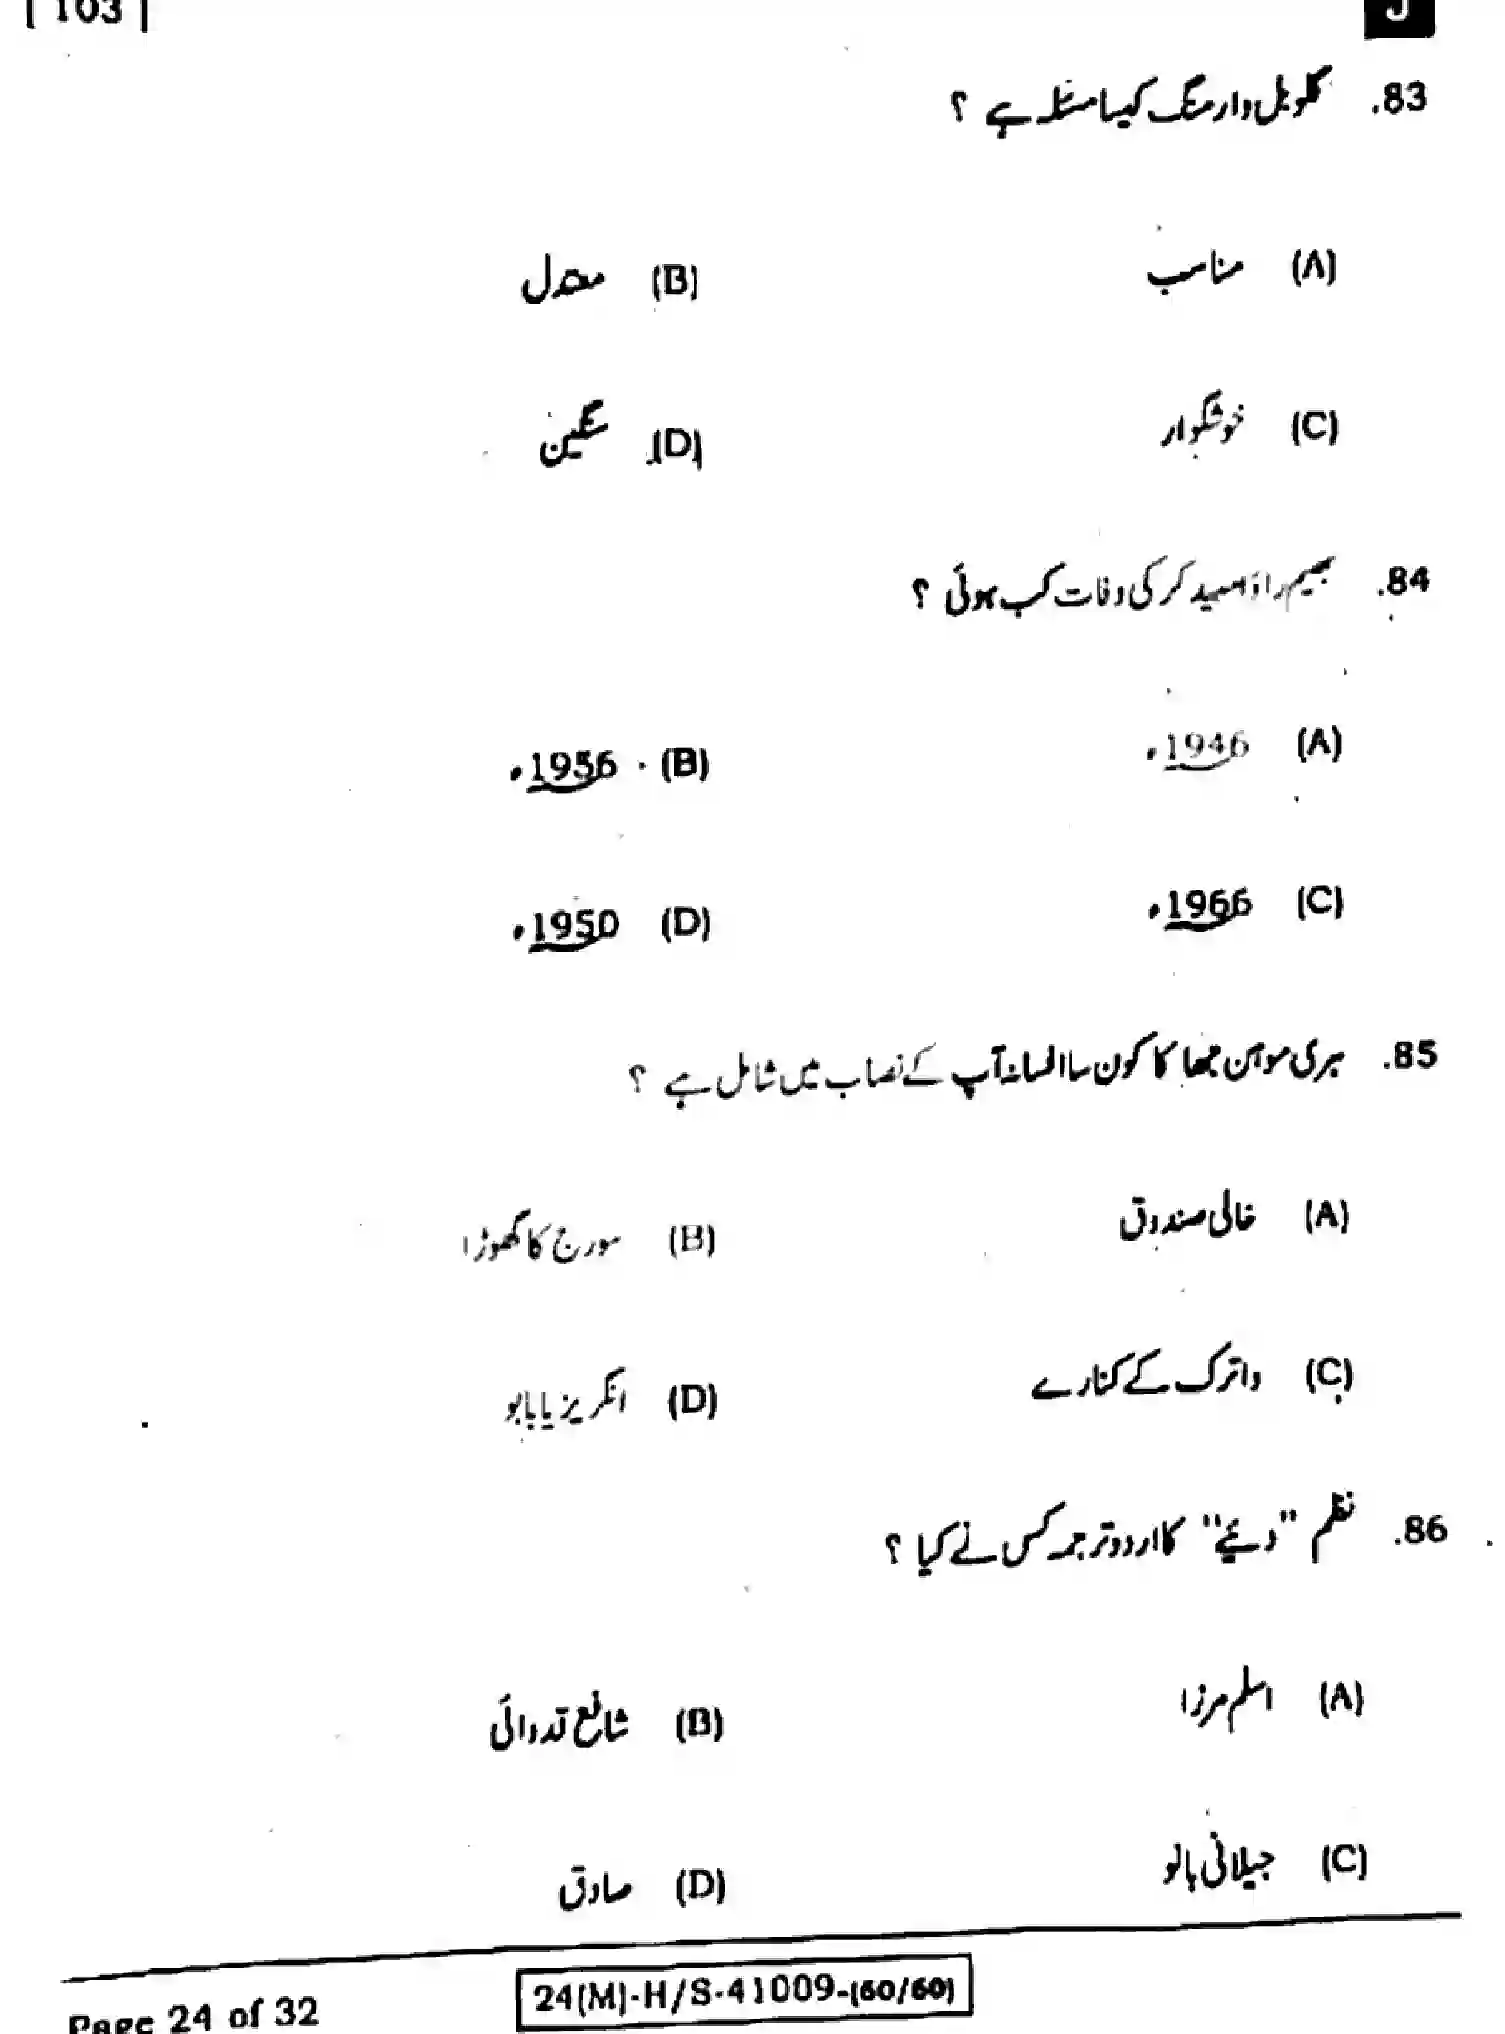 [ 103 ] J
83. گلوبل وارمنگ کیسا مسئلہ ہے ؟
(A) مناسب (B) معتدل
(C) خوشگوار (D) سنگین
84. بھیم راؤ امبیڈکر کی وفات کب ہوئی ؟
(A) 1946ء (B) 1956ء
(C) 1966ء (D) 1950ء
85. ہری موہن جھا کا کون سا افسانہ آپ کے نصاب میں شامل ہے ؟
(A) خالی صندوق (B) سورج کا گھوڑا
(C) واترک کے کنارے (D) انگریزیا بابو
86. نظم "دیئے" کا اردو ترجمہ کس نے کیا ؟
(A) اسلم مرزا (B) شافع قدوائی
(C) جیلانی بانو (D) صادق
24(M)-H/S-41009-(60/60)
Page 24 of 32